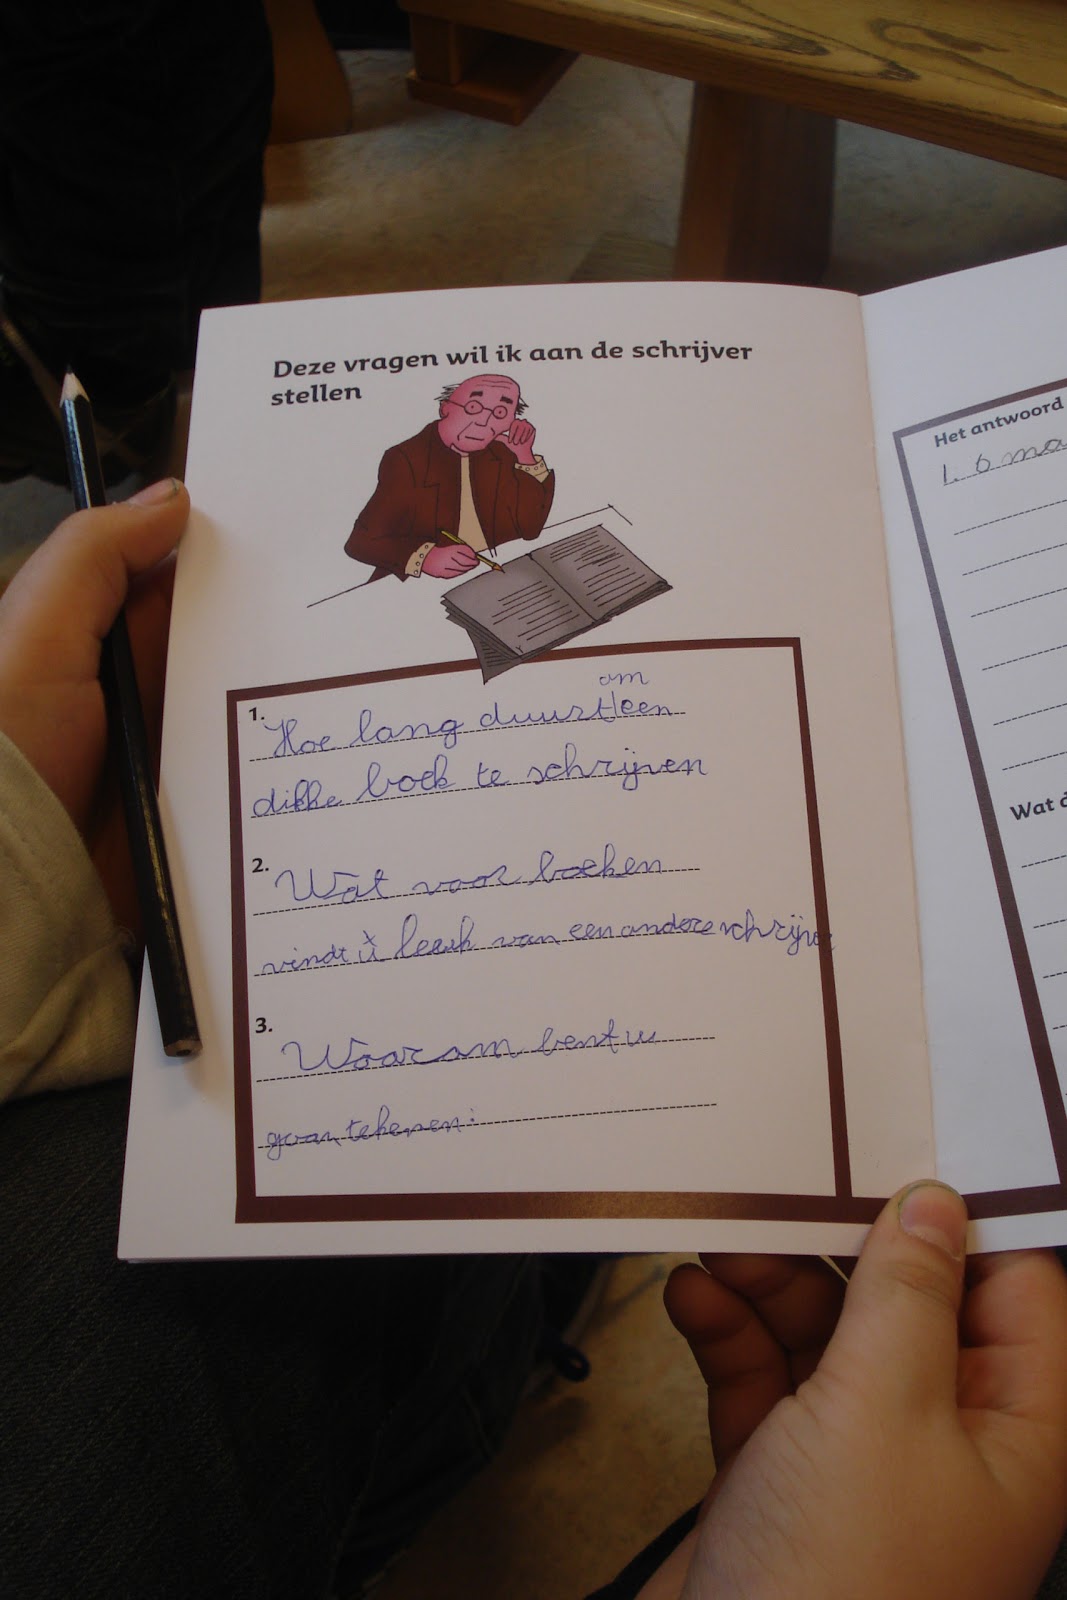 Deze vragen wil ik aan de schrijver
stellen
1. Hoe lang duurt om een
dikke boek te schrijven
2. Wat voor boeken
vindt u leeuk van een andere schrijver
3. Waarom bent u
gaan tekenen:
Het antwoord
1. 6 ma
Wat d